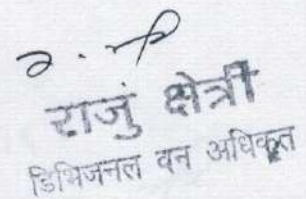 राजुं क्षेत्री
डिभिजनल वन अधिकृत